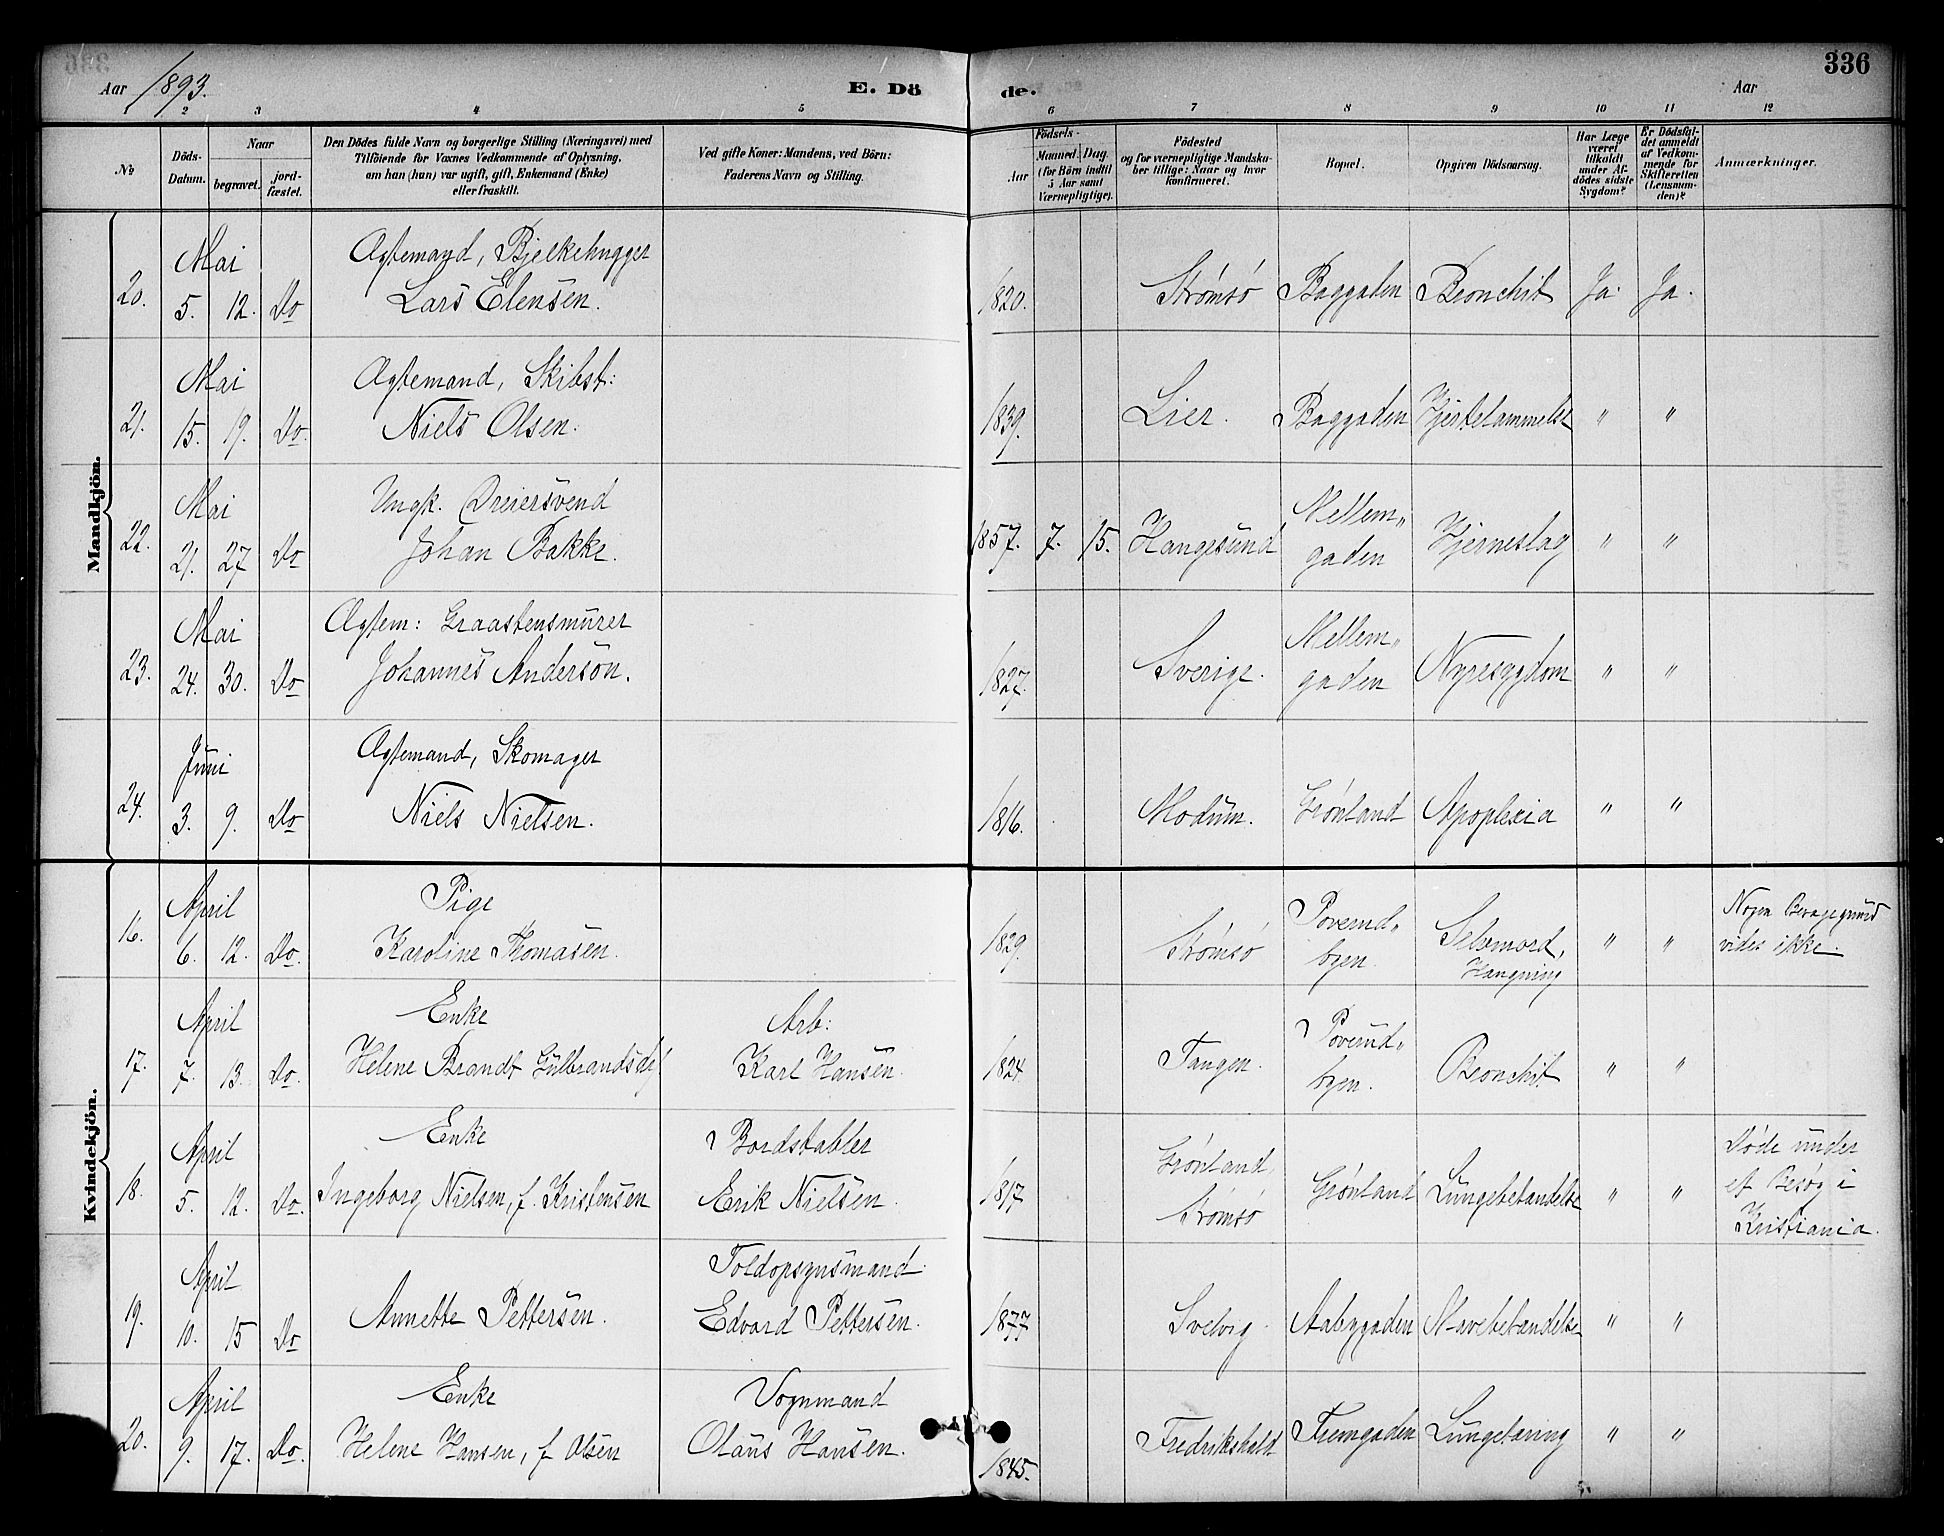 336
Aar 1893. E. Dö de. Aar
1 2 3 4 5 6 7 8 9 10 11 12
No
Döds-Datum.
Naar
begravet.
jord-fæstet.
Den Dödes fulde Navn og borgerlige Stilling (Næringsvei) med
Tilföiende for Voxnes Vedkommende af Oplysning,
om han (hun) var ugift, gift, Enkemand (Enke)
eller fraskilt.
Ved gifte Koner: Mandens, ved Börn:
Faderens Navn og Stilling.
Födsels-
Aar
Maaned. Dag.
(for Börn indtil
5 Aar samt
Værnepligtige).
Födested
og for værnepligtige Mandska-
ber tillige: Naar og hvor
konfirmeret.
Bopæl.
Opgiven Dödsaarsag.
Har Læge
været
tilkaldt
under Af-
dödes sidste
Sygdom?
Er Dödsfal-
det anmeldt
af Vedkom-
mende for
Skifteretten
(Lensman-
den)?
Anmærkninger.
Mandkjön.
Mai Ægtemand, Bjelkehugger
20. 5. 12. Do Lars Elensen. 1820. Strømsø Baggaden Bronchit Ja. Ja.
Mai Ægtemand, Skibst:
21. 15. 19. Do. Niels Olsen. 1839. Lier. Baggaden Hjertelammelse " "
Mai Ungk. Dreiersvend Mellem"
22. 21. 27 Do Johan Bakke. 1857. 7. 15. Haugesund gaden Hjerneslag " "
Mai Ægtem: Graastensmurer Mellem"
23. 24. 30. Do Johannes Anderson. 1827. Sverige. gaden Nyresygdom " "
Juni Ægtemand, Skomager
24. 3. 9. Do Niels Nielsen. 1816. Modum. Grønland Apoplexia " "
Kvindekjön.
April Pige Poverud" Nogen Bevæggrund
16. 6. 12. Do. Karoline Thomasen. 1829. Strømsø byen. Selvmord, " " vides ikke.
Hængning
April Enke Arb: Poverud"
17. 7. 13. Do. Helene Brandt Gulbrandsdr Karl Hansen. 1824. Tangen. byen. Bronchit " "
April Enke Bordstabler Grønland, Døde under
18. 5. 12. Do. Ingeborg Nielsen, f. Kristensen Erik Nielsen. 1817. Strømsø Grønland Lungebetændelse " " et Besøg i
Kristiania.
April Toldopsynsmand
19. 10. 15 Do Annette Pettersen. Edvard Pettersen. 1877 Svelvig. Aabygaden Mavebetændelse " "
April Enke Vognmand
20. 9. 17. Do. Helene Hansen, f Olsen Olaus Hansen. 1845. Fredrikshald Tremgaden Lungetæring " "